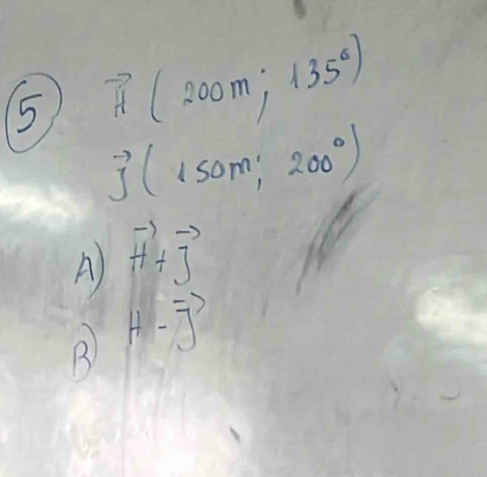 5 H⃗ ( 200m; 135°)
J⃗ ( 150m; 200°)
A) H⃗ + J⃗
B) H - J⃗